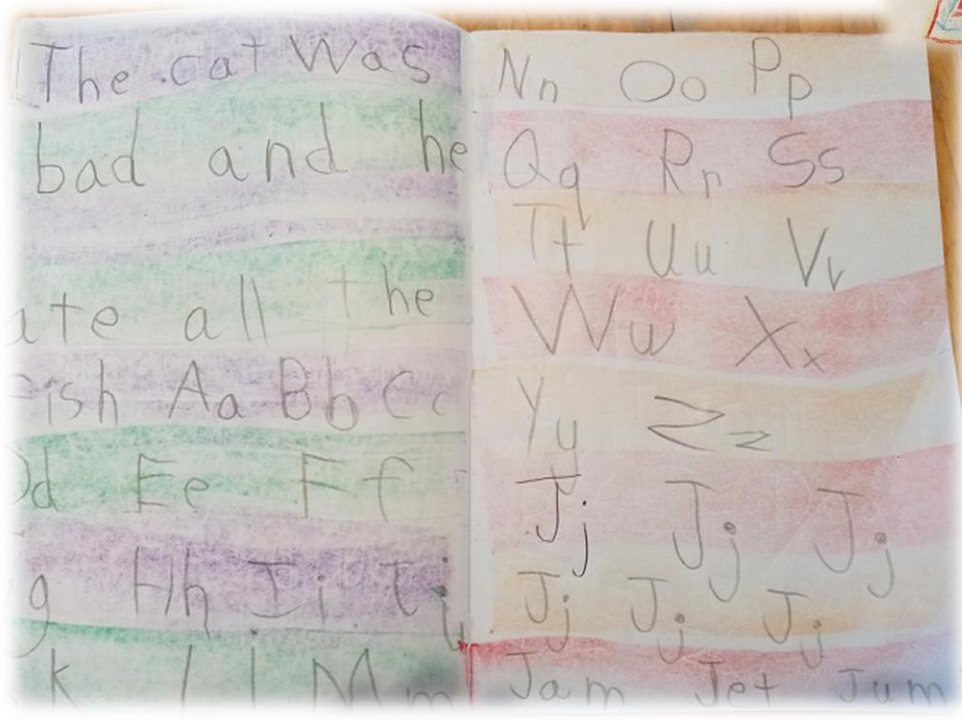 The cat Was
bad and he
ate all the
fish Aa Bb Cc
Dd Ee Ff
g Hh Ii Jj
k Ll Mm
Nn Oo Pp
Qq Rr Ss
Tt Uu Vv
Ww Xx
Yy Zz
Jj Jj Jj
Jj Jj Jj
Jam Jet Jum